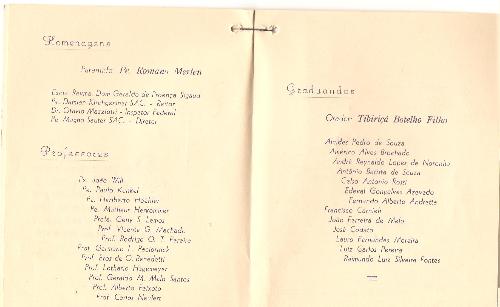 Homenagens
Paraninfo Pe. Romano Merten
Exmo. Revmo. Dom Geraldo de Proença Sigaud
Pe. Damian Kirchgessner SAC. - Reitor
Dr. Otavio Mazziotti - Inspetor Federal
Pe. Magno Sauter SAC. - Diretor
Professores
Pe. João Will
Pe. Paulo Kunkel
Pe. Heriberto
Pe. Mathaus Herrormnar
Profa. Geny S. Lemos
Prof. Vicente G. Machado
Prof. Rodrigo O. T. Pereira
Prof. Germano
Prof. Eros de O. Benedetti
Prof. Lothario Hagemeyer
Prof. Geraldo M. Melo Santos
Prof. Alberto Peixoto
Prof. Carlos Neufert
Graduandos
Orador Tibiriçá Botelho Filho
Amides Pedro de Souza
Américo Alves Brochado
André Reynaldo Lopes de Noronha
Antônio Batista de Souza
Celso Antonio Rossi
Edeval Gonçalves Azevedo
Fernando Alberto Andretta
Francisco Cornieri
João Ferreira de Melo
José Codato
Lauro Fernandes Moreira
Luiz Carlos Pereira
Raimundo Luiz Silveira Fontes